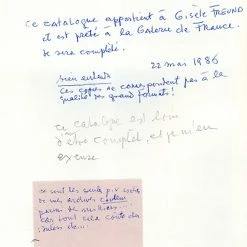 ce catalogue appartient à Gisèle FREUND
et est prêté à la Galerie de France.
Il sera complété.
22 mai 1986
bien entendu
ces copies ne correspondent pas à la
qualité des grand formats!
ce catalogue est loin
d'être complet, et je m'en
excuse
ce sont les seuls
de mes archives couleur
parmi de milliers
car tout cela coûte des